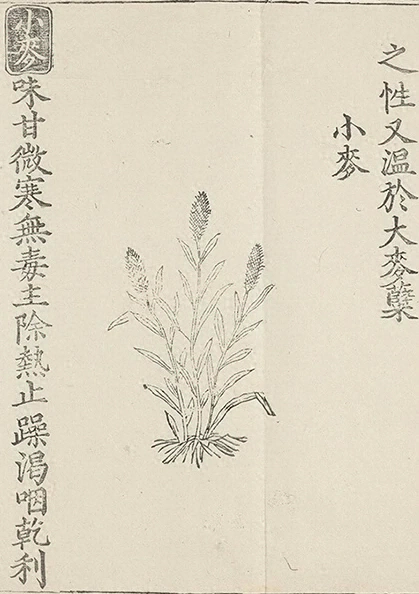 之性又温於大麥蘖
小麥
小麥味甘微寒無毒主除熱止躁渴咽乾利